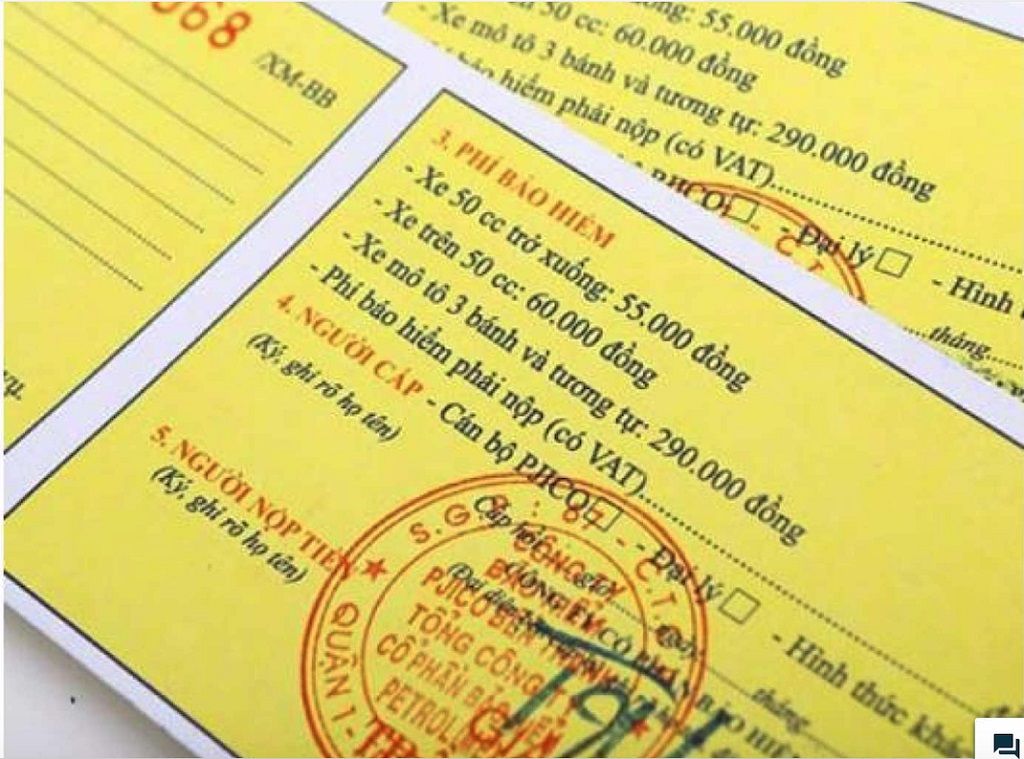 068
/XM-BB
55.000 đồng
50 cc: 60.000 đồng
- Xe mô tô 3 bánh và tương tự: 290.000 đồng
hiểm phải nộp (có VAT)
PJICO □ - Đại lý □ - Hình
tháng
3. PHÍ BẢO HIỂM
- Xe 50 cc trở xuống: 55.000 đồng
- Xe trên 50 cc: 60.000 đồng
- Xe mô tô 3 bánh và tương tự: 290.000 đồng
- Phí bảo hiểm phải nộp (có VAT)
4. NGƯỜI CẤP - Cán bộ PJICO □ - Đại lý □ - Hình thức
(Ký, ghi rõ họ tên)
Cấp hồi
tháng
5. NGƯỜI NỘP TIỀN
(Ký, ghi rõ họ tên)
CÔNG TY
BẢO HIỂM
PJICO BẾN THÀNH
TỔNG CÔNG TY
CỔ PHẦN BẢO HIỂM
PETROLIMEX
QUẬN 1